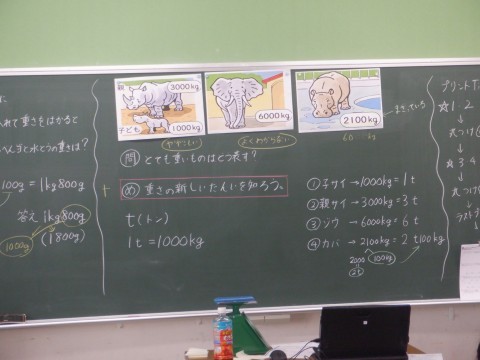 れて重さをはかると
んごと水とうの重さは?
100g=1kg800g
答え 1kg800g
1000g
(1800g)
親
3000kg
子ども
1000kg
6000kg
2100kg
やすい
よくわからない
問 とても重いものはどう表す?
め 重さの新しいたんいを知ろう。
t(トン)
1t=1000kg
①子サイ→1000kg=1t
②親サイ→3000kg=3t
③ゾウ→6000kg=6t
④カバ→2100kg=2t100kg
2000
100kg
2t
プリントT
☆1 2
丸つけ
☆3 4
丸つけ
ラスト